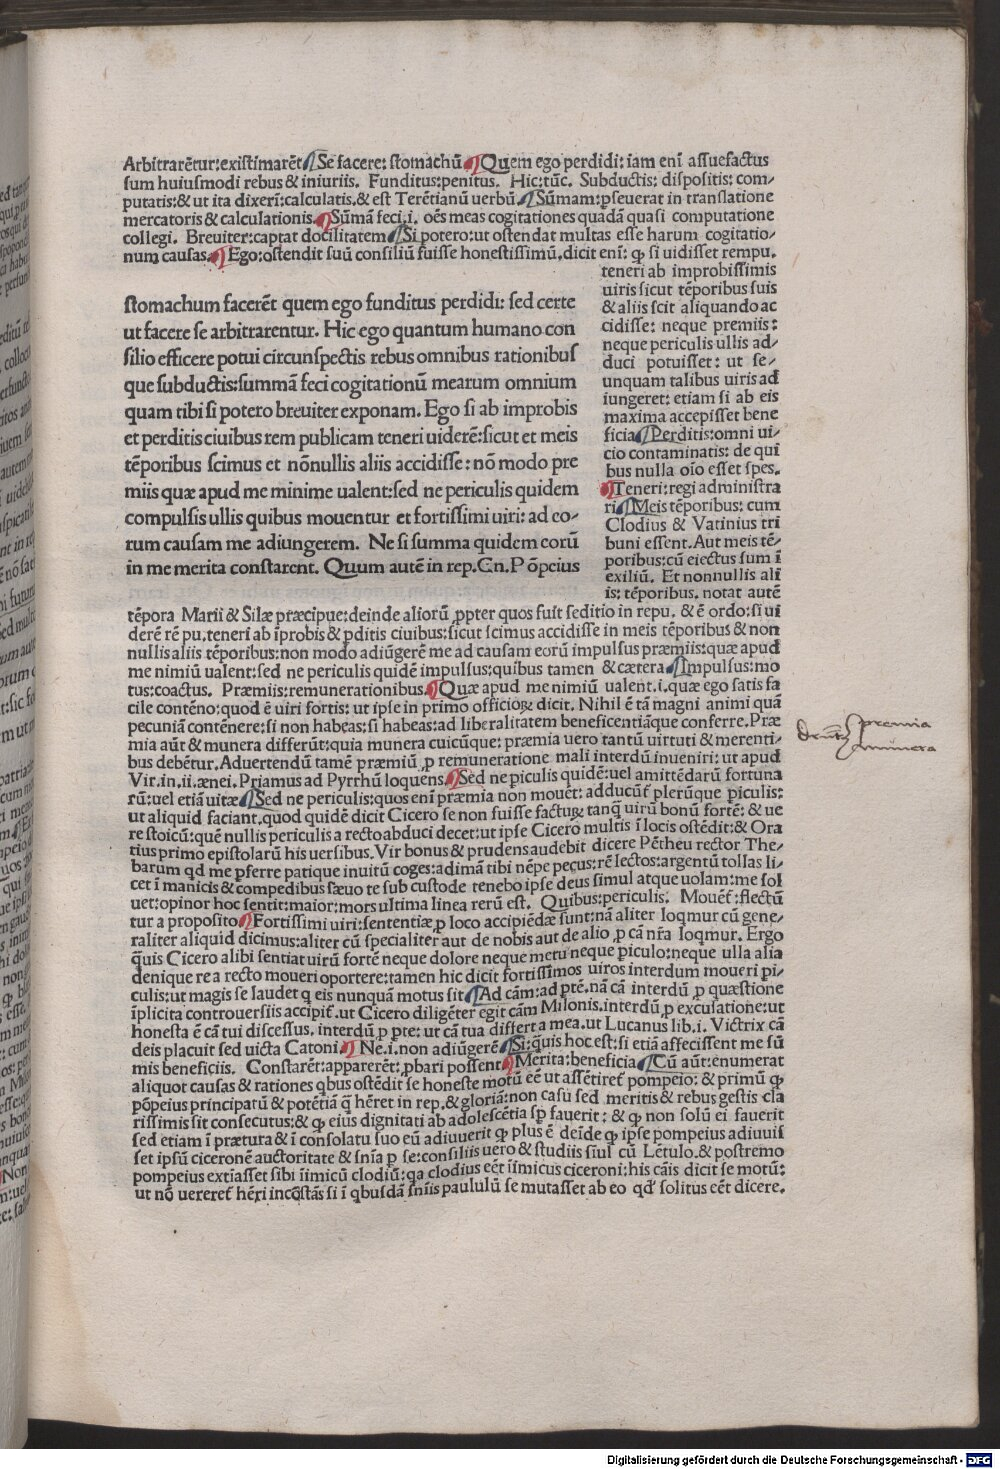 Arbitrarēt̃ur:existimarēt Se facere: stomachū Quem ego perdidi: iam eni assuefactus
sum huiusmodi rebus & iniuriis. Funditus: penitus. Hic: tūc. Subductis: dispositis: com-
putatis: & ut ita dixeri: calculatis. & est Terētianū uerbū Sūmam: pseuerat in translatione
mercatoris & calculationis Sūmā feci. i. oēs meas cogitationes quadā quasi computatione
collegi. Breuiter: captat docilitatem Si potero: ut ostendat multas esse harum cogitatio-
num causas. Ego: ostendit suū consiliū fuisse honestissimū. dicit eni: ꝙ si uidisset rempu.
teneri ab improbissimis
uiris sicut tēporibus suis
& aliis scit aliquando ac
cidisse: neque premiis:
neque periculis ullis ad-
duci potuisset: ut se-
unquam talibus uiris ad
iungeret: etiam si ab eis
maxima accepisset bene
ficia Perditis: omni ui-
cio contaminatis: de qui
bus nulla oīo esset spes.
Teneri: regi administra
ri Meis tēporibus: cum
Clodius & Vatinius tri
buni essent. Aut meis tē-
poribus: cū eiectus sum ī
exiliū. Et nonnullis ali
is: tēporibus. notat autē
stomachum facerēt quem ego funditus perdidi: sed certe
ut facere se arbitrarentur. Hic ego quantum humano con
silio efficere potui circunspectis rebus omnibus rationibus
que subductis: summā feci cogitationū mearum omnium
quam tibi si potero breuiter exponam. Ego si ab improbis
et perditis ciuibus rem publicam teneri uiderē: sicut et meis
tēporibus scimus et nōnullis aliis accidisse: nō modo pre
miis quæ apud me minime ualent: sed ne periculis quidem
compulsis ullis quibus mouentur et fortissimi uiri: ad eo-
rum causam me adiungerem. Ne si summa quidem eorū
in me merita constarent. Quum autē in rep. Cn. Pōpeius
tēpora Marii & Silæ præcipue: deinde aliorū ꝓpter quos fuit seditio in repu. & ē ordo: si ui
derē rē pu. teneri ab īprobis & pditis ciuibus: sicut scimus accidisse in meis tēporibus & non
nullis aliis tēporibus: non modo adiūgerē me ad causam eorū impulsus præmiis: quæ apud
me nimiū ualent: sed ne periculis quidē impulsus: quibus tamen & cætera Impulsus: mo
tus: coactus. Præmiis: remunerationibus. Quæ apud me nimiū ualent. i. quæ ego satis fa
cile contēno: quod ē uiri fortis: ut ipse in primo officioꝝ dicit. Nihil ē tā magni animi quā
pecuniā contēnere: si non habeas: si habeas: ad liberalitatem beneficentiāque conferre. Præ
mia aūt & munera differūt: quia munera cuicūque: præmia uero tantū uirtuti & merenti-
bus debētur. Aduertendū tamē præmiū ꝓ remuneratione mali interdū inueniri: ut apud
Vir. in. ii. ænei. Priamus ad Pyrrhū loquens. Sed ne piculis quidē: uel amittēdarū fortuna
rū: uel etiā uitæ Sed ne periculis: quos eni præmia non mouēt: adducūt plerūque piculis:
ut aliquid faciant. quod quidē dicit Cicero se non fuisse factuꝝ tanꝙ uirū bonū fortē: & ue
re stoicū: quē nullis periculis a recto abduci decet: ut ipse Cicero multis ī locis ostēdit: & Ora
tius primo epistolarū his uersibus. Vir bonus & prudens audebit dicere Pētheu rector The-
barum qd me pferre patique inuitū coges: adimā tibi nēpe pecus: rē lectos: argentū tollas li-
cet ī manicis & compedibus sæuo te sub custode tenebo ipse deus simul atque uolam: me sol
uet: opinor hoc sentit: maior: mors ultima linea rerū est. Quibus: periculis. Mouēt: flectū
tur a proposito Fortissimi uiri: sententiæ ꝓ loco accipiēdæ sunt: nā aliter loqmur cū gene-
raliter aliquid dicimus: aliter cū specialiter aut de nobis aut de alio ꝓ cā nr̃a loqmur. Ergo
q̄uis Cicero alibi sentiat uirū fortē neque dolore neque metu neque piculo: neque ulla alia
denique re a recto moueri oportere: tamen hic dicit fortissīmos uiros interdum moueri pi-
culis: ut magis se laudet q eis nunquā motus sit Ad cām: ad ptē. nā cā interdū ꝓ quæstione
īplicita controuersiis accipit̃. ut Cicero diligēter egit cām Milonis. interdū ꝓ excusatione: ut
honesta ē cā tui discessus. interdū ꝓ pte: ut cā tua differt a mea. ut Lucanus lib. i. Victrix cā
deis placuit sed uicta Catoni. Ne. i. non adiūgerē Si: q̄uis hoc est: si etiā affecissent me sū
mis beneficiis. Constarēt: apparerēt: ꝓbari possent Merita: beneficia Cū aūt: enumerat
aliquot causas & rationes qbus ostēdit se honeste motū eē ut assētiret̃ pompeio: & primū ꝙ
pōpeius principatū & potētiā q̄ hēret in rep. & gloriā: non casu sed meritis & rebus gestis cla
rissimis sit consecutus: & ꝙ eius dignitati ab adolescētia sp fauerit: & ꝙ non solū ei fauerit
sed etiam ī prætura & ī consolatu suo eū adiuuerit ꝙ plus ē deīde ꝙ ipse pompeius adiuuis
set ipsū ciceronē auctoritate & snīa ꝓ se: consiliis uero & studiis siul cū Lētulo. & postremo
pompeius extiasset sibi īimicū clodiū: qa clodius eēt īimicus ciceroni: his cāis dicit se motū:
ut nō uereret̃ hēri incōstās si ī qbusdā snīis paululū se mutasset ab eo qd solitus eēt dicere.
premia
munera